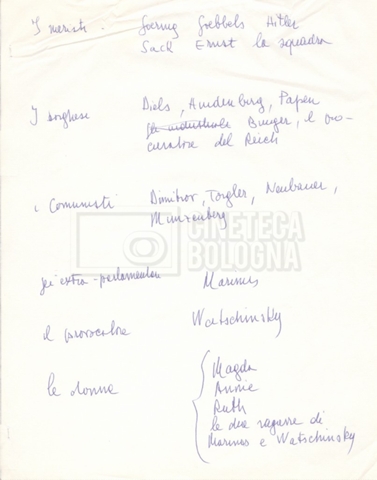 I nazisti. Goering Goebbels Hitler
Sack Ernst la squadra
I borghesi Diels, Hindenburg, Papen
un industriale Bunger, il pro-
curatore del Reich
i Comunisti Dimitrov, Torgler, Neubauer,
Münzenberg
CINETECA
BOLOGNA
gli extra-parlamentari Marinus
il provocatore Watschinsky
le donne Magda
Annie
Ruth
le due ragazze di
Marinus e Watschinsky